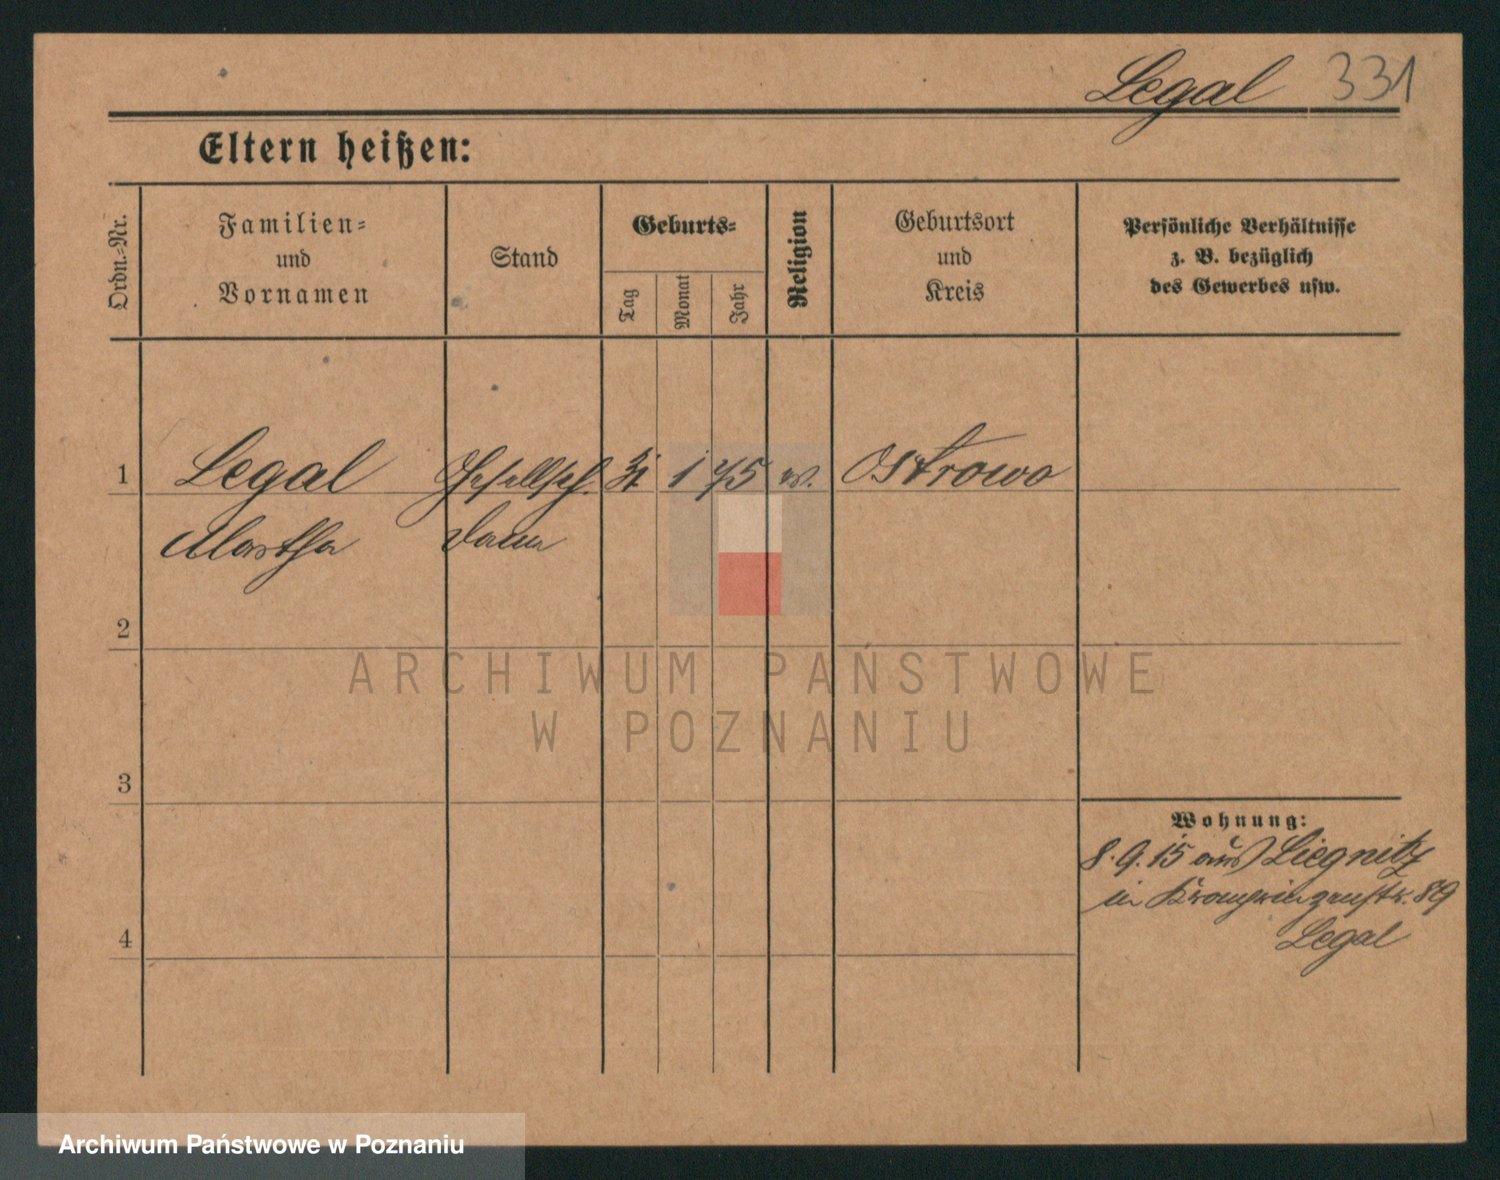 Legal 331
Eltern heißen:
Ordn.-Nr.
Familien- und Vornamen
Stand
Geburts-
Tag
Monat
Jahr
Religion
Geburtsort und Kreis
Persönliche Verhältnisse
z. B. bezüglich
des Gewerbes usw.
1 Legal Gesellsch. 31 1 75 Ostrowo
Martha Dame
2
ARCHIWUM PAŃSTWOWE
W POZNANIU
3
Wohnung:
8.9.15 aus Liegnitz
in Kronprinzenstr. 89
Legal
4
Archiwum Państwowe w Poznaniu